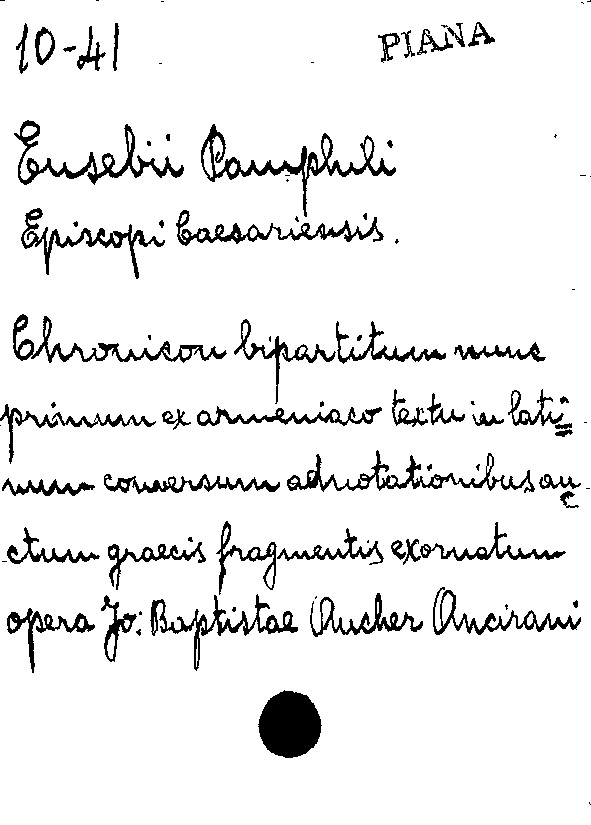 10-41 PIANA
Eusebii Pamphili
Episcopi Caesariensis.
Chronicon bipartitum nunc
primum ex armeniaco textu in lati=
num conversum adnotationibus au
ctum graecis fragmentis exornatum
opera Jo: Baptistae Aucher Ancirani